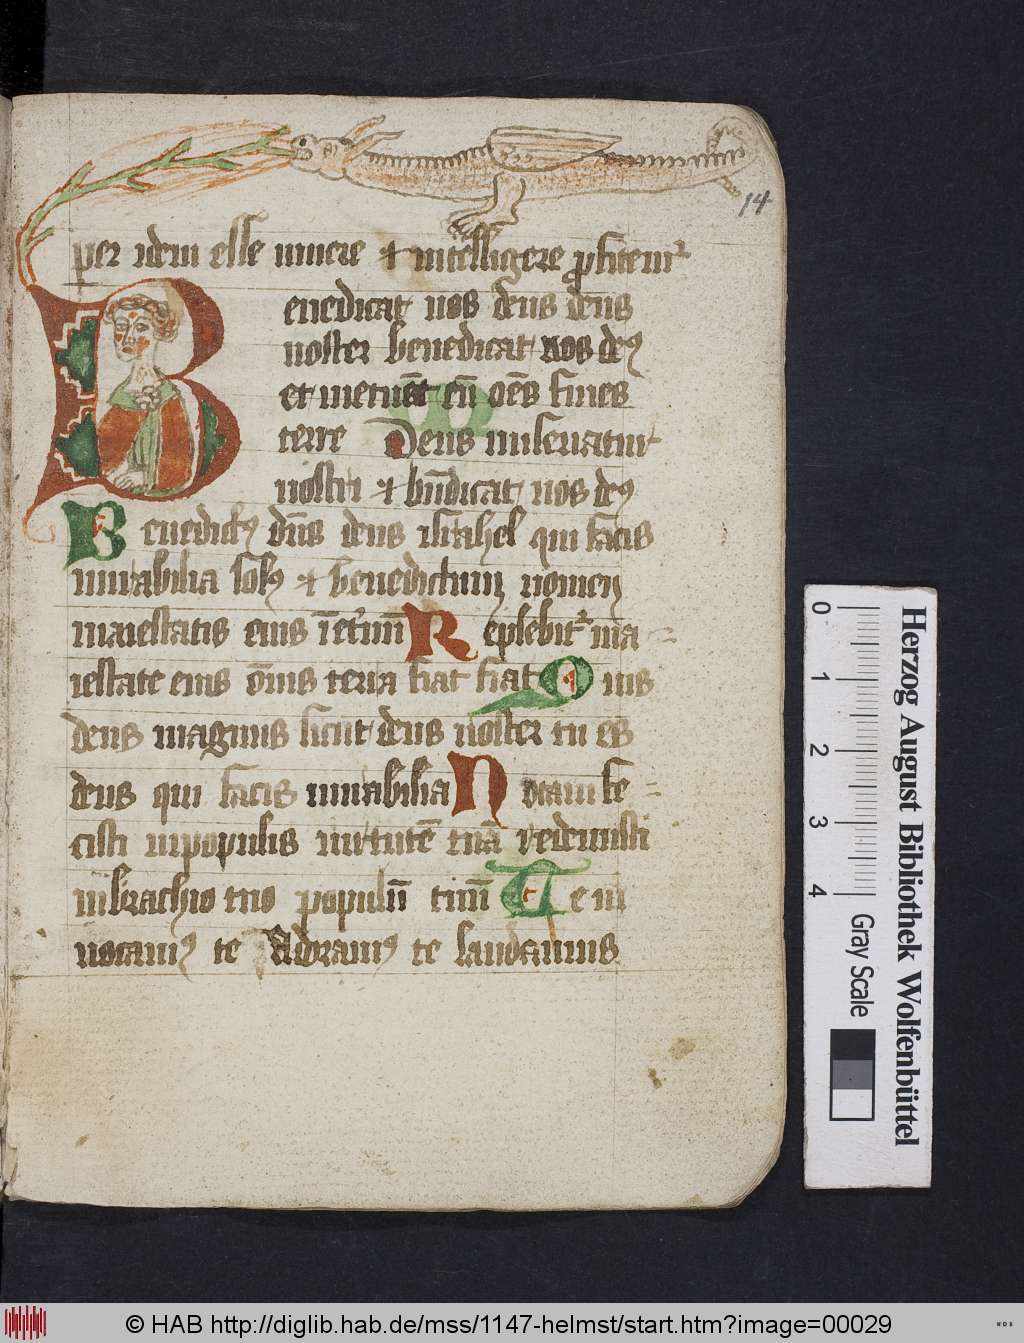 14
per idem esse uiuere & intelligere ꝓfitemᷣ
Benedicat nos deus deus
noster benedicat nos deꝰ
et metuēt eū oēs fines
terre Deus misereatur
nostri & bn̄dicat nos deꝰ
Benedictꝰ dn̄s deus israhel qui facis
mirabilia solꝰ & benedictum nomen
maiestatis eius ī et̄nū Replebitᷣ ma
iestate eius ōnis terra fiat fiat Quis
deus magnus sicut deus noster tu es
deus qui facis mirabilia Notam fe
cisti in populis uirtutē tuā redemisti
in brachio tuo populū tuū Te in
uocamꝰ te Adoramꝰ te laudamus
Herzog August Bibliothek Wolfenbüttel
0 1 2 3 4
Gray Scale
© HAB http://diglib.hab.de/mss/1147-helmst/start.htm?image=00029
WDB